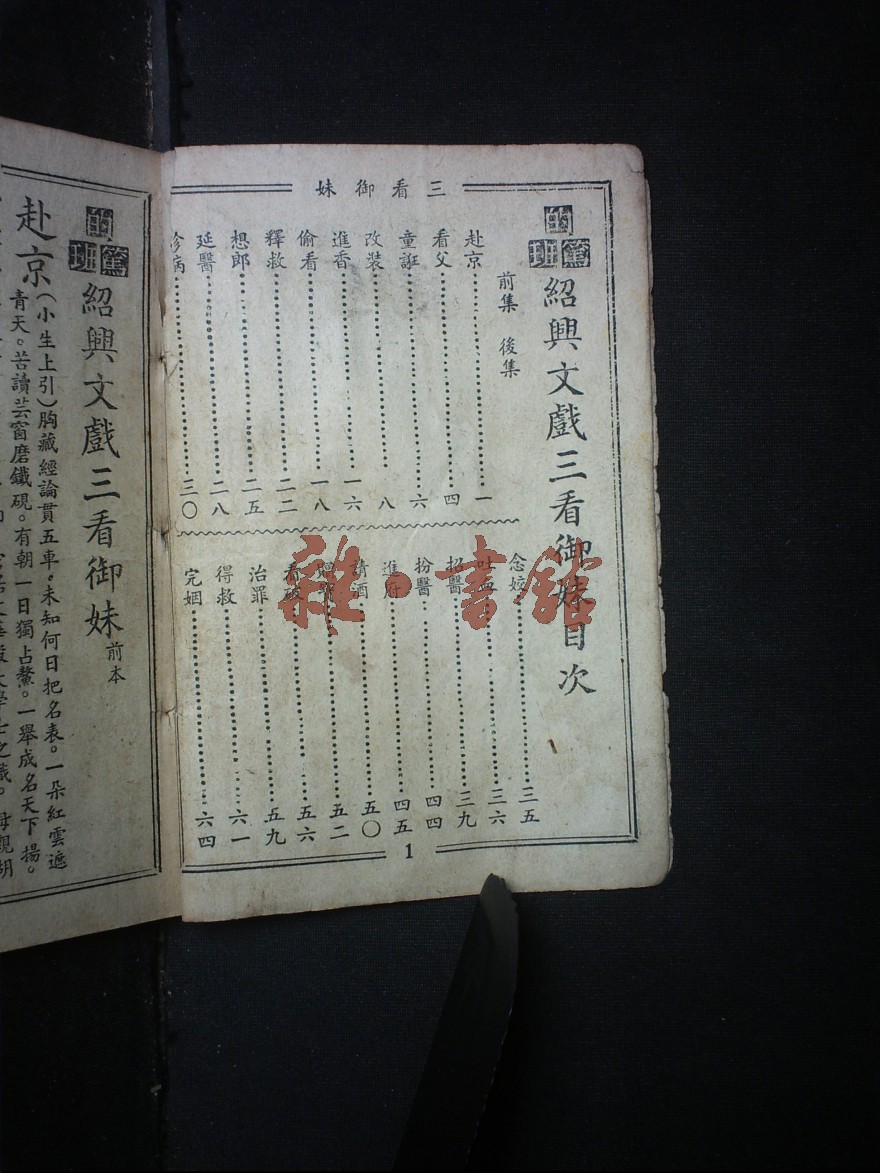 三看御妹
的篤班 紹興文戲三看御妹目次
前集 後集
赴京……一
看父……四
童誑……六
改裝……八
進香……一六
偷看……一八
釋救……二二
想郎……二五
延醫……二八
診病……三〇
念姣……三五
吐血……三六
招醫……三九
扮醫……四四
進府……四五
請酒……五〇
……五二
看破……五六
治罪……五九
得救……六一
完姻……六四
1
的篤班 紹興文戲三看御妹 前本
赴京(小生上引)胸藏經論貫五車。未知何日把名表。一朵紅雲遮
青天。苦讀芸窗磨鐵硯。有朝一日獨占鰲。一舉成名天下揚。
雜·書館